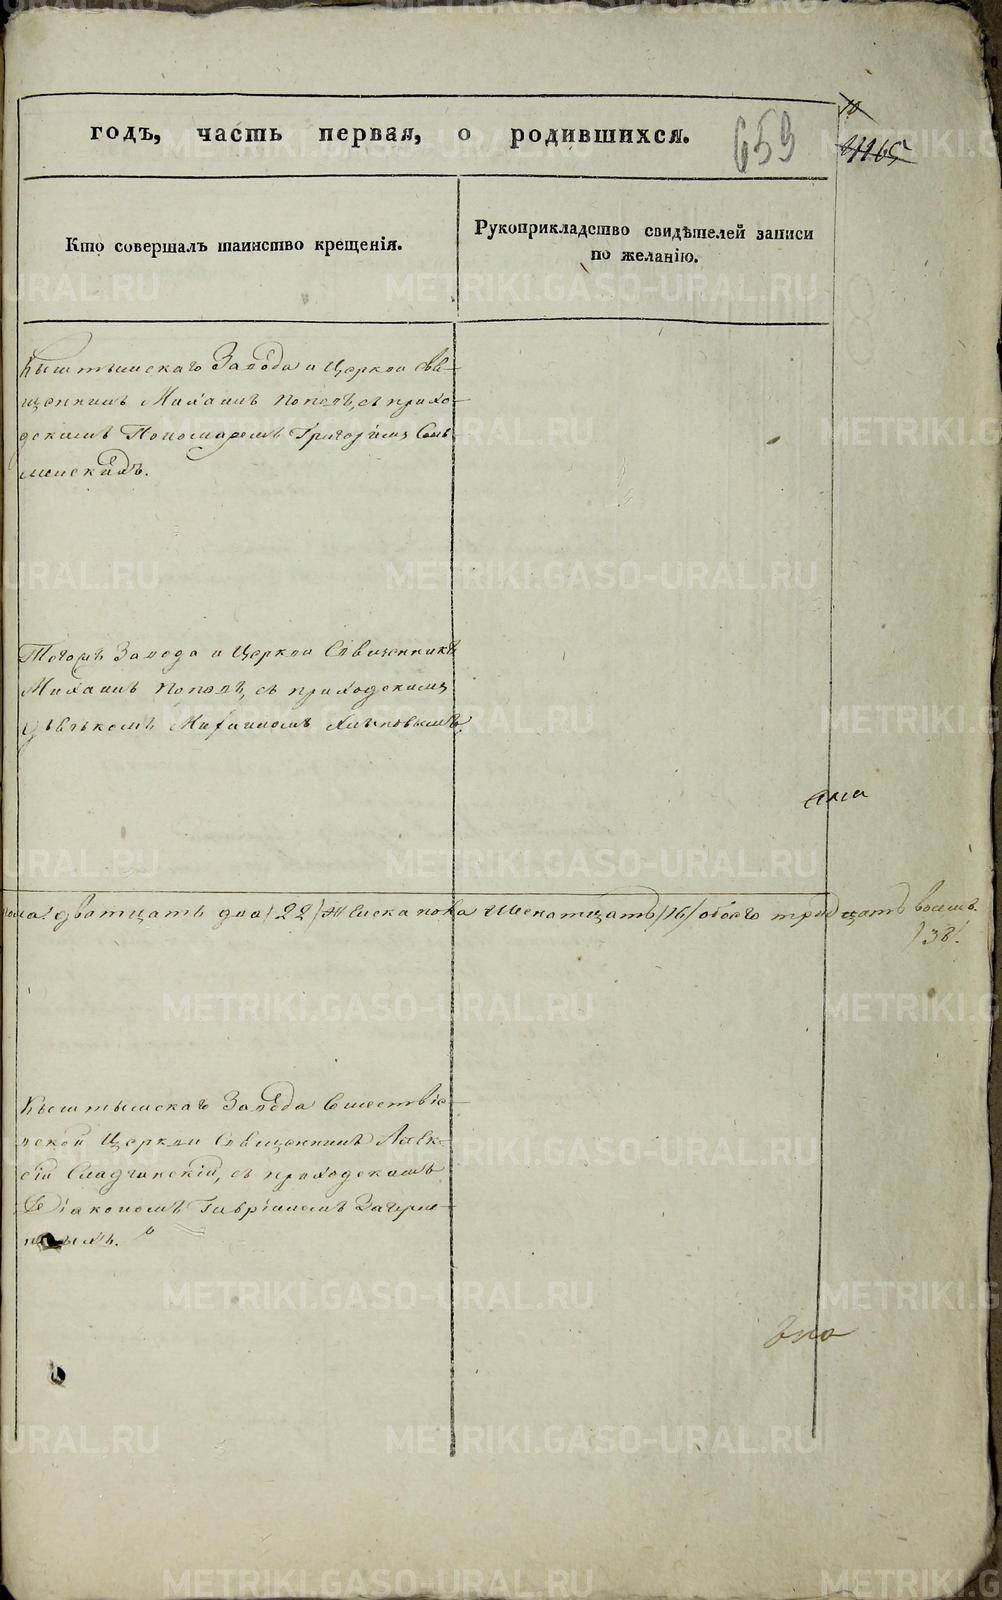 годъ, часть первая, о родившихся.
659
10
1165
Кто совершалъ таинство крещенія.
Рукоприкладство свидѣтелей записи
по желанію.
Кыштымскаго Завода и Церкви свя-
щенникъ Михаилъ Поповъ, съ прихо-
дскимъ Пономаремъ Григоріемъ
Тогожъ Завода и Церкви Священникъ
Михаилъ Поповъ, съ приходскимъ
дьячкомъ
дватцать два /22/ женска пола шеснатцать /16/ обоего тридцать восемь
/38/.
Кыштымскаго Завода Сошествіе-
вской Церкви Священникъ Алек-
сѣй съ приходскимъ
Діакономъ Гавріиломъ
METRIKI.GASO-URAL.RU